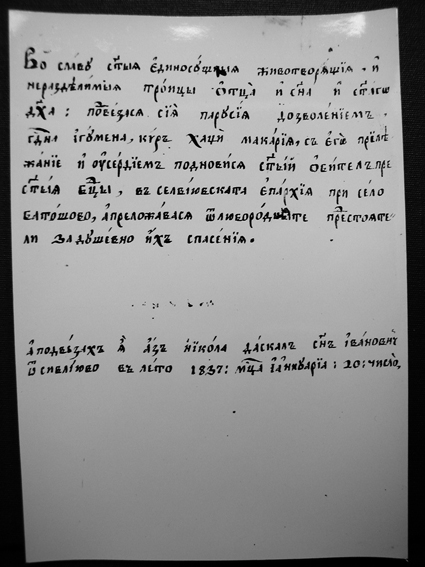 Во славу ст҃ыѧ єдиносѹщныѧ животворѧщїѧ и
нераздѣлимыѧ троицы ѻтц҃а и сн҃а и ст҃агѡ
дх҃а : повезасѧ сїѧ парусїѧ дозволенїемъ
гдн҃а ігѹмена, кѵръ хаџи макарїѧ, съ егѡ прилѣ
жанїе и ѹсердїемъ подновисѧ ст҃ый обителъ пре
ст҃ыѧ бц҃ы, въ селвїювската єпархїѧ при село
батошово, а преложавасѧ ѿ любородныте престоѧте
ли за душевно ихъ спасенїѧ.
а подвезахъ ѧ азъ никола даскалъ сн҃ъ івановичъ
ѿ сивлїюво въ лѣто 1837: мц҃а іаннуарїа : 20: число,